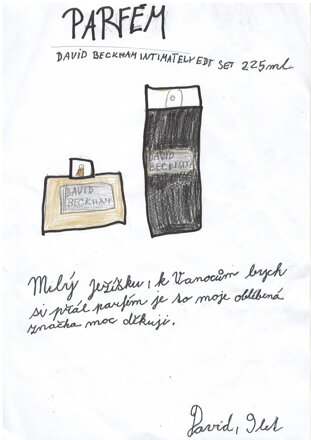 PARFÉM
DAVID BECKHAM INTIMATELY EDT SET 225ml
DAVID
BECKHAM
DAVID
BECKHAM
Milý Ježíšku, k Vánocům bych
si přál parfém je to moje oblíbená
značka moc děkuji.
David, 9 let